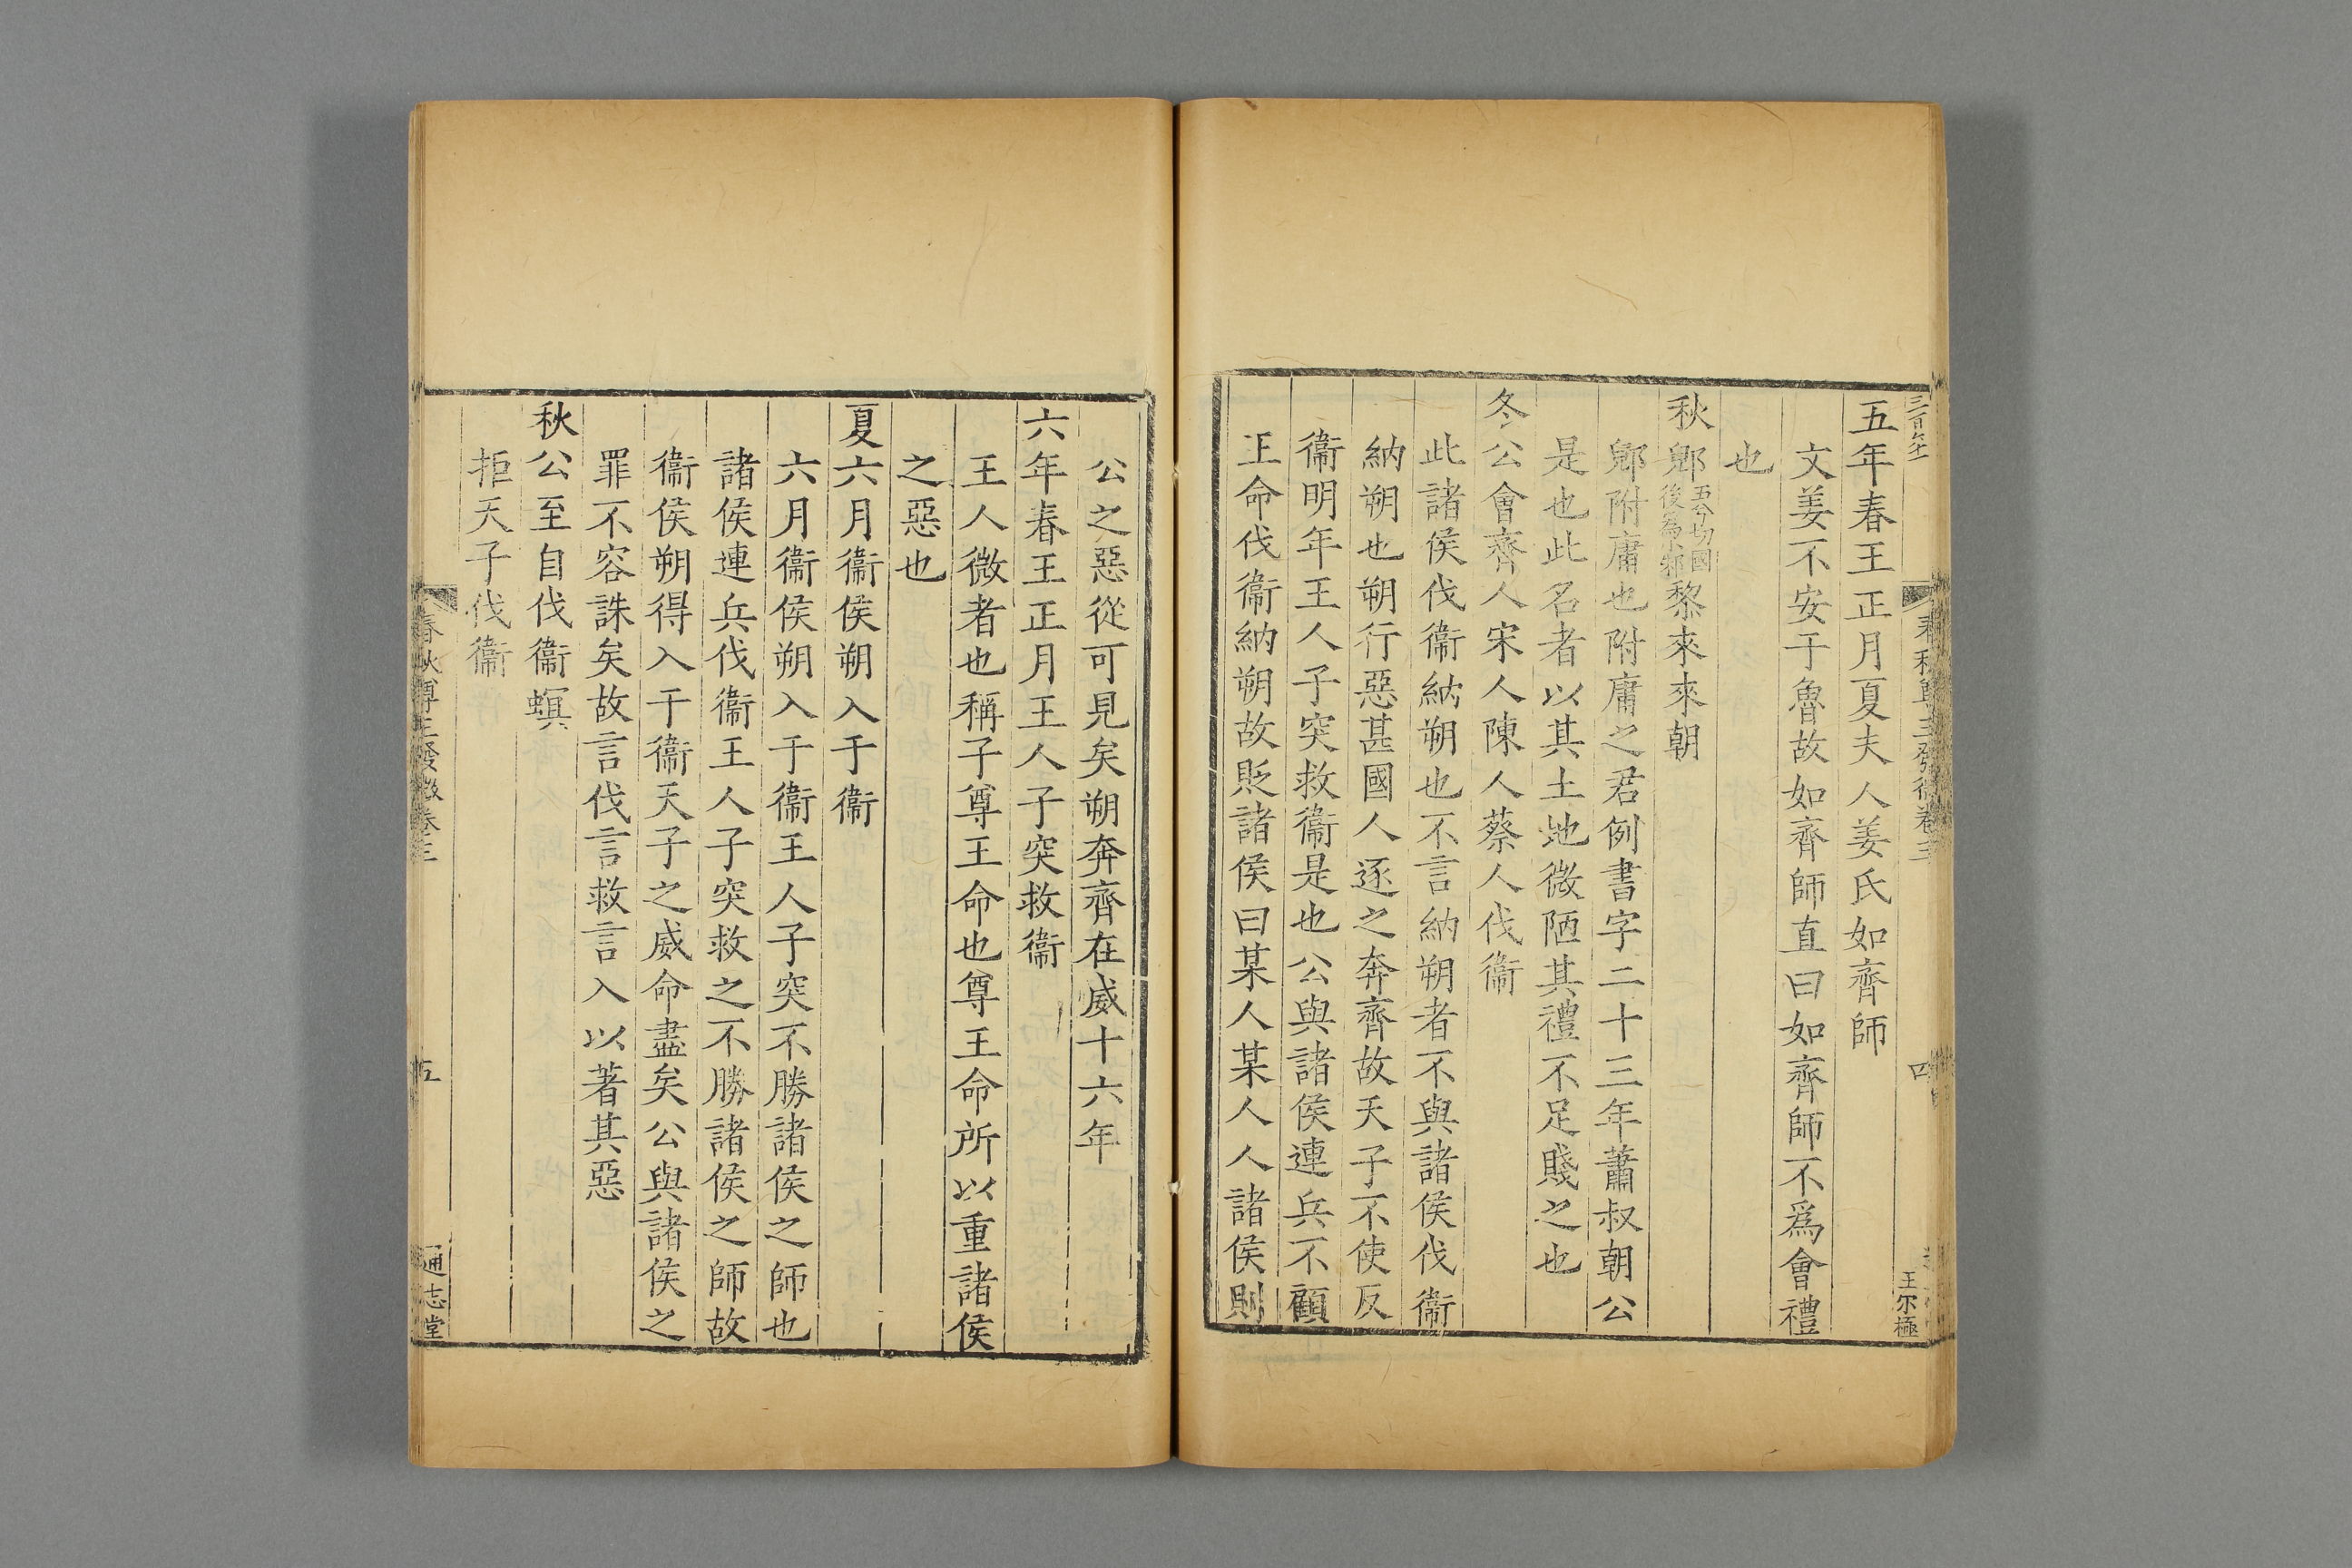 春秋尊王發微卷三
四
王尔極
五年春王正月夏夫人姜氏如齊師
文姜不安于魯故如齊師直曰如齊師不爲會禮
也
秋郳五兮切國後為小邾黎來來朝
郳附庸也附庸之君例書字二十三年蕭叔朝公
是也此名者以其土地微陋其禮不足賤之也
冬公會齊人宋人陳人蔡人伐衞
此諸侯伐衞納朔也不言納朔者不與諸侯伐衞
納朔也朔行惡甚國人逐之奔齊故天子不使反
衞明年王人子突救衞是也公與諸侯連兵不顧
王命伐衞納朔故貶諸侯曰某人某人人諸侯則
公之惡從可見矣朔奔齊在威十六年
六年春王正月王人子突救衞
王人微者也稱子尊王命也尊王命所以重諸侯
之惡也
夏六月衞侯朔入于衞
六月衞侯朔入于衞王人子突不勝諸侯之師也
諸侯連兵伐衞王人子突救之不勝諸侯之師故
衞侯朔得入于衞天子之威命盡矣公與諸侯之
罪不容誅矣故言伐言救言入以著其惡
秋公至自伐衞螟
拒天子伐衞
春秋尊王發微卷三
五
通志堂